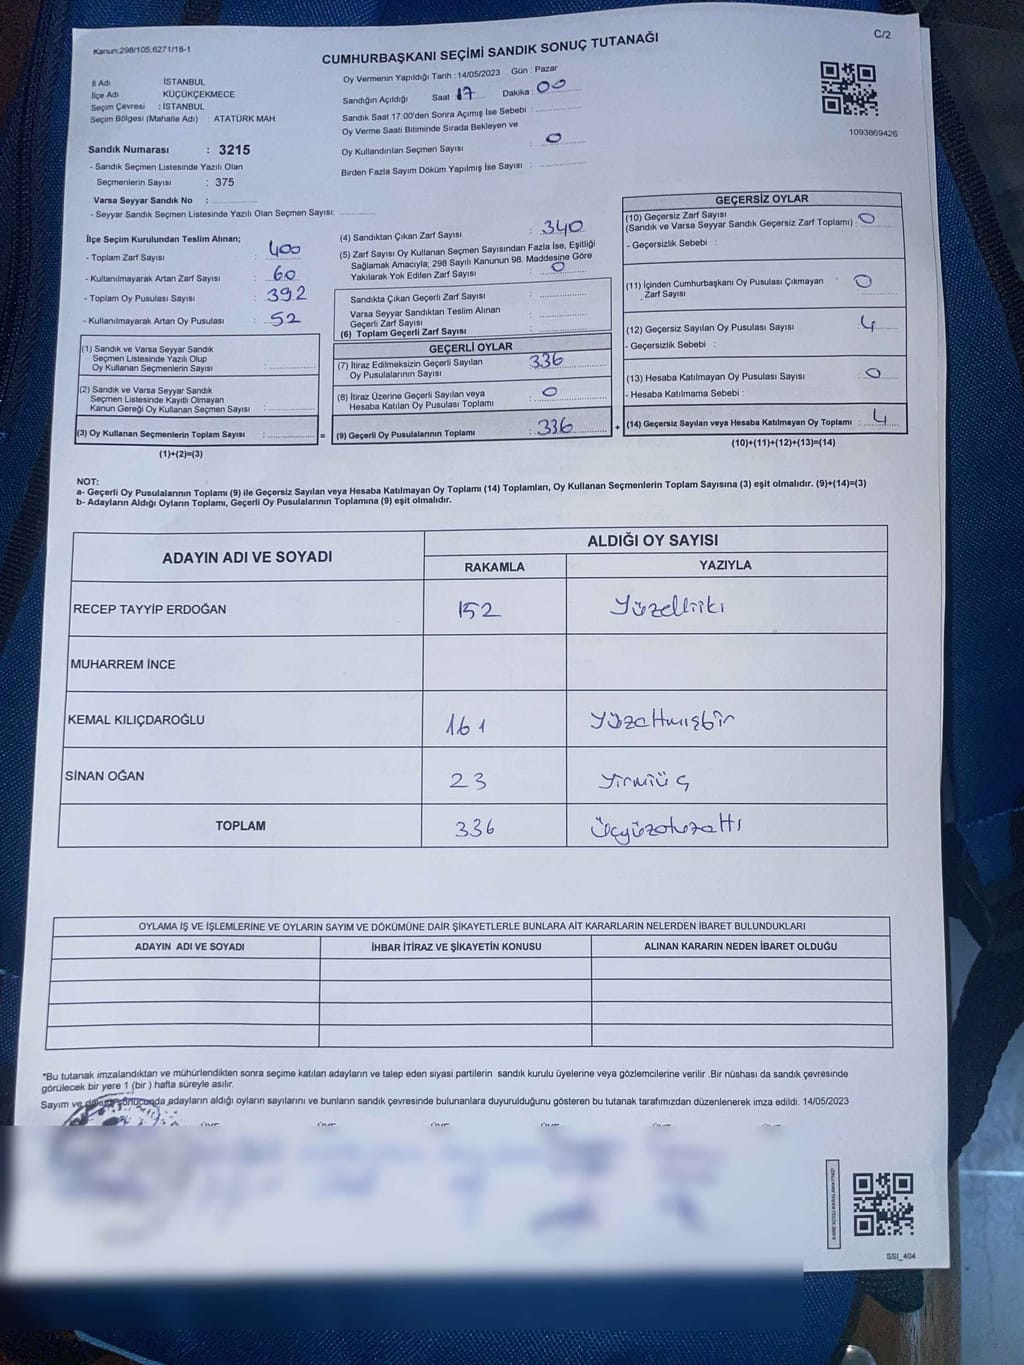 Kanun:298/105,6271/18-1
C/2
CUMHURBAŞKANI SEÇİMİ SANDIK SONUÇ TUTANAĞI
İl Adı İSTANBUL
İlçe Adı KÜÇÜKÇEKMECE
Seçim Çevresi : İSTANBUL
Seçim Bölgesi (Mahalle Adı) : ATATÜRK MAH.
Sandık Numarası : 3215
- Sandık Seçmen Listesinde Yazılı Olan
Seçmenlerin Sayısı : 375
Varsa Seyyar Sandık No :
- Seyyar Sandık Seçmen Listesinde Yazılı Olan Seçmen Sayısı:
Oy Vermenin Yapıldığı Tarih : 14/05/2023 Gün : Pazar
Sandığın Açıldığı Saat 17 Dakika : 00
Sandık Saat 17.00'den Sonra Açımış İse Sebebi :
Oy Verme Saati Bitiminde Sırada Bekleyen ve
Oy Kullandırılan Seçmen Sayısı : 0
Birden Fazla Sayım Döküm Yapılmış İse Sayısı :
1093869426
İlçe Seçim Kurulundan Teslim Alınan;
- Toplam Zarf Sayısı : 400
- Kullanılmayarak Artan Zarf Sayısı : 60
- Toplam Oy Pusulası Sayısı : 392
- Kullanılmayarak Artan Oy Pusulası : 52
(1) Sandık ve Varsa Seyyar Sandık
Seçmen Listesinde Yazılı Olup
Oy Kullanan Seçmenlerin Sayısı :
(2) Sandık ve Varsa Seyyar Sandık
Seçmen Listesinde Kayıtlı Olmayan
Kanun Gereği Oy Kullanan Seçmen Sayısı :
(3) Oy Kullanan Seçmenlerin Toplam Sayısı : =
(1)+(2)=(3)
(4) Sandıktan Çıkan Zarf Sayısı : 340
(5) Zarf Sayısı Oy Kullanan Seçmen Sayısından Fazla İse, Eşitliği
Sağlamak Amacıyla; 298 Sayılı Kanunun 98. Maddesine Göre
Yakılarak Yok Edilen Zarf Sayısı : 0
Sandıkta Çıkan Geçerli Zarf Sayısı :
Varsa Seyyar Sandıktan Teslim Alınan
Geçerli Zarf Sayısı :
(6) Toplam Geçerli Zarf Sayısı :
GEÇERLİ OYLAR
(7) İtiraz Edilmeksizin Geçerli Sayılan
Oy Pusulalarının Sayısı : 336
(8) İtiraz Üzerine Geçerli Sayılan veya
Hesaba Katılan Oy Pusulası Toplamı : 0
(9) Geçerli Oy Pusulalarının Toplamı : 336 +
GEÇERSİZ OYLAR
(10) Geçersiz Zarf Sayısı
(Sandık ve Varsa Seyyar Sandık Geçersiz Zarf Toplamı) : 0
- Geçersizlik Sebebi :
(11) İçinden Cumhurbaşkanı Oy Pusulası Çıkmayan
Zarf Sayısı : 0
(12) Geçersiz Sayılan Oy Pusulası Sayısı : 4
- Geçersizlik Sebebi :
(13) Hesaba Katılmayan Oy Pusulası Sayısı : 0
- Hesaba Katılmama Sebebi :
(14) Geçersiz Sayılan veya Hesaba Katılmayan Oy Toplamı : 4
(10)+(11)+(12)+(13)=(14)
NOT:
a- Geçerli Oy Pusulalarının Toplamı (9) ile Geçersiz Sayılan veya Hesaba Katılmayan Oy Toplamı (14) Toplamları, Oy Kullanan Seçmenlerin Toplam Sayısına (3) eşit olmalıdır. (9)+(14)=(3)
b- Adayların Aldığı Oyların Toplamı, Geçerli Oy Pusulalarının Toplamına (9) eşit olmalıdır.
ADAYIN ADI VE SOYADI
ALDIĞI OY SAYISI
RAKAMLA YAZIYLA
RECEP TAYYİP ERDOĞAN 152 Yüzelliiki
MUHARREM İNCE
KEMAL KILIÇDAROĞLU 161 Yüzaltmışbir
SİNAN OĞAN 23 Yirmiüç
TOPLAM 336 Üçyüzotuzaltı
OYLAMA İŞ VE İŞLEMLERİNE VE OYLARIN SAYIM VE DÖKÜMÜNE DAİR ŞİKAYETLERLE BUNLARA AİT KARARLARIN NELERDEN İBARET BULUNDUKLARI
ADAYIN ADI VE SOYADI İHBAR İTİRAZ VE ŞİKAYETİN KONUSU ALINAN KARARIN NEDEN İBARET OLDUĞU
*Bu tutanak imzalandıktan ve mühürlendikten sonra seçime katılan adayların ve talep eden siyasi partilerin sandık kurulu üyelerine veya gözlemcilerine verilir .Bir nüshası da sandık çevresinde
görülecek bir yere 1 (bir ) hafta süreyle asılır.
Sayım ve döküm sonucunda adayların aldığı oyların sayılarını ve bunların sandık çevresinde bulunanlara duyurulduğunu gösteren bu tutanak tarafımızdan düzenlenerek imza edildi. 14/05/2023
KARE KODU KARALAMAYINIZ!
SSI_404